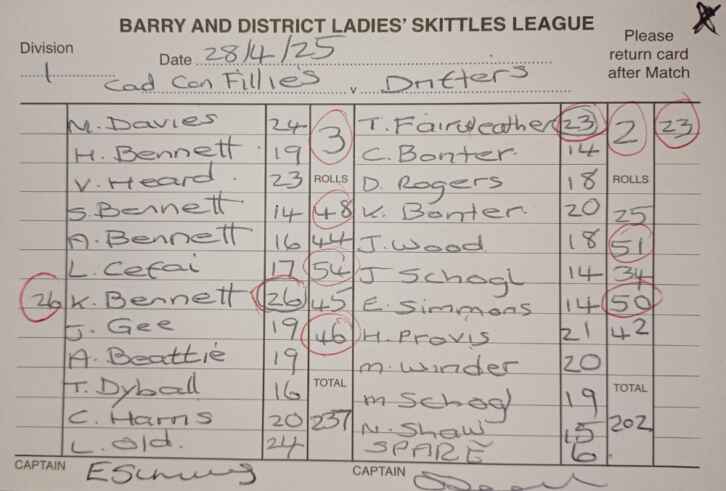 BARRY AND DISTRICT LADIES' SKITTLES LEAGUE
Division 1
Date 28/4/25
Please return card after Match
Cad Con Fillies v Drifters
M. Davies 24 3 T. Fairweather 23 2 23
H. Bennett 19 C. Bonter 14
V. Heard 23 ROLLS D. Rogers 18 ROLLS
S. Bennett 14 48 K. Bonter 20 25
A. Bennett 16 44 J. Wood 18 51
L. Cefai 17 54 J Schogl 14 34
26 K. Bennett 26 45 E. Simmons 14 50
J. Gee 19 46 H. Provis 21 42
A. Beattie 19 M. Winder 20
T. Dyball 16 TOTAL M Schogl 19 TOTAL
C. Harris 20 237 N. Shaw 15 202
L. Old. 24 SPARE 6
CAPTAIN CAPTAIN